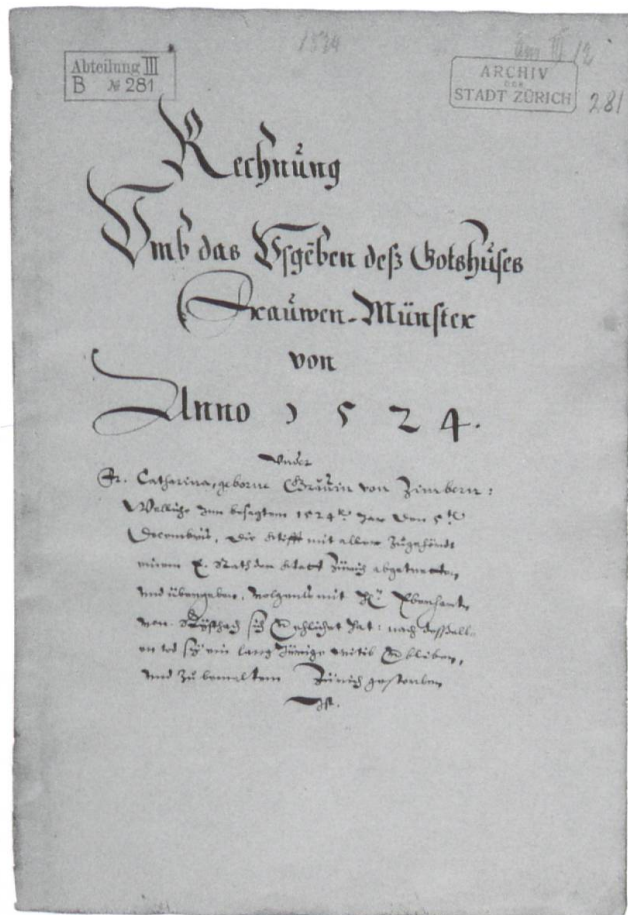 1524
Abteilung III
B № 281
ARCHIV
DER
STADT ZÜRICH
281
Rechnung
Vmb das Vsgeben deß Gotshuses
Frauwen-Münster
von
Anno 1524.
Vnder
Fr. Catharina, geborne Gräuin von Zimbern:
Wellche Jnn besagtem 1524 Jar den 5
Decembris, die Stifft mit aller Zugehördt
einem E. Rath der Statt Zürich abgetretten,
vnd übergeben, volgents mit Hr. Eberhart
von Ryschach sich Eehlichet hat: nach desselben
tod sy ein lang Zit witib Bliben,
vnd zu Zürich gestorben
Ist.